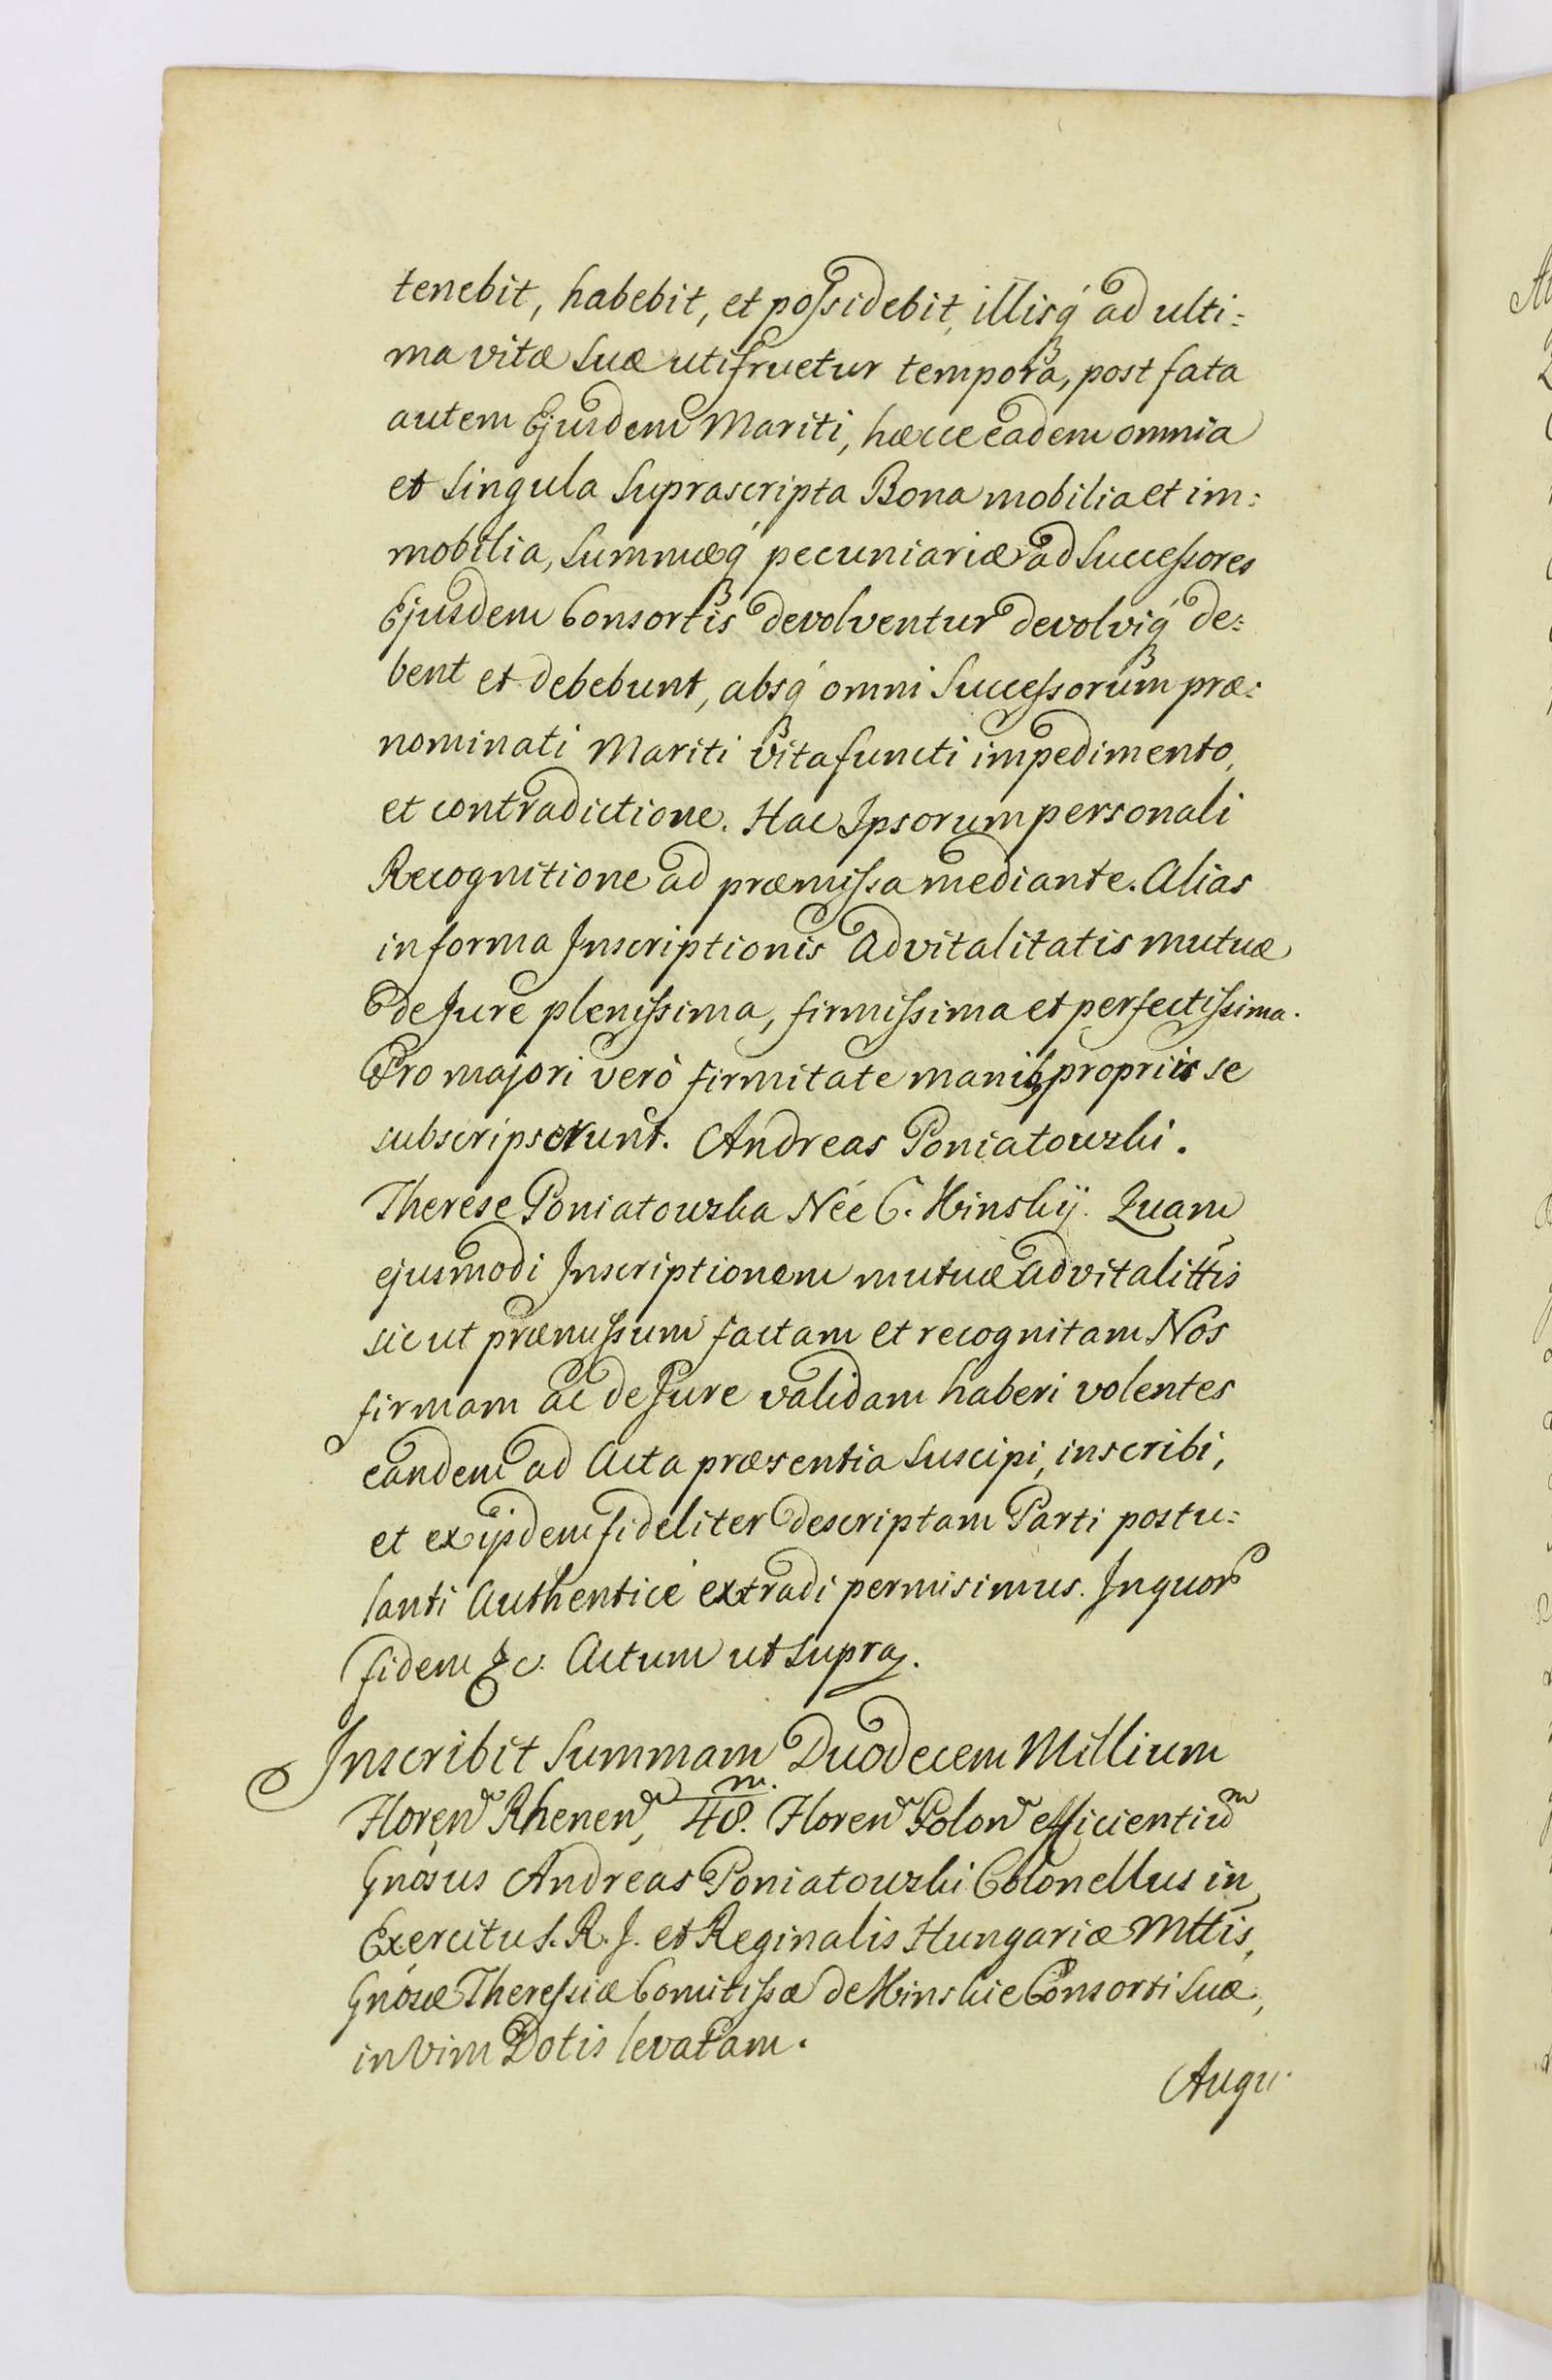 tenebit, habebit, et possidebit, illisq́ ad ulti:
ma vitæ suæ utifruetur tempora, post fata
autem Ejusdem Mariti, hæcce eadem omnia
et singula suprascripta Bona mobilia et im:
mobilia, summæq́ pecuniariæ ad successores
Ejusdem Consortis devolventur devolviq́ de:
bent et debebunt, absq́ omni successorum præ:
nominati Mariti vita functi impedimento,
et contradictione. Hac Ipsorum personali
Recognitione ad præmissa mediante. Alias
in forma Inscriptionis advitalitatis mutuæ
de Jure plenissima, firmissima et perfectissima.
Pro majori verò firmitate manibꝫ propriis se
subscripserunt. Andreas Poniatowski.
Therese Poniatowska Née C. Kinskÿ. Quam
ejusmodi Inscriptionem mutuæ advitalittis
sicut præmissum factam et recognitam Nos
firmam ac de Jure validam haberi volentes
eandem ad Acta præsentia suscipi, inscribi,
et ex ijsdem fideliter descriptam Parti postu:
lanti authenticè extradi permisimus. In quor
fidem &c. Actum ut supra.
Inscribit Summam Duodecem Millium
Floren Rhenen, 48.m. Floren Polon efficientium
Gnosus Andreas Poniatowski Colonellus in
Exercitu S. R. I. et Reginalis Hungariæ Mttis,
Gnosæ Theressiæ Comitissæ de Kinskie Consorti suæ,
in vim Dotis levatam.
Augu.